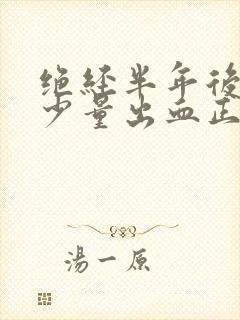 绝经半年後
少量出血正
湯一原